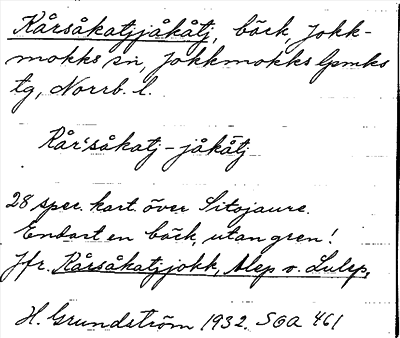 Kårsåkatjjåkåtj, bäck, Jokk-
mokks sn, Jokkmokks lpmks
tg, Norrb. l.
Kår'såkatj-jåkåtj
28 spec. kart. över Sitojaure.
Endast en bäck, utan gren!
Jfr. Kårsåkatjjokk, Alep o. Lulep.
H. Grundström 1932. SOA 461